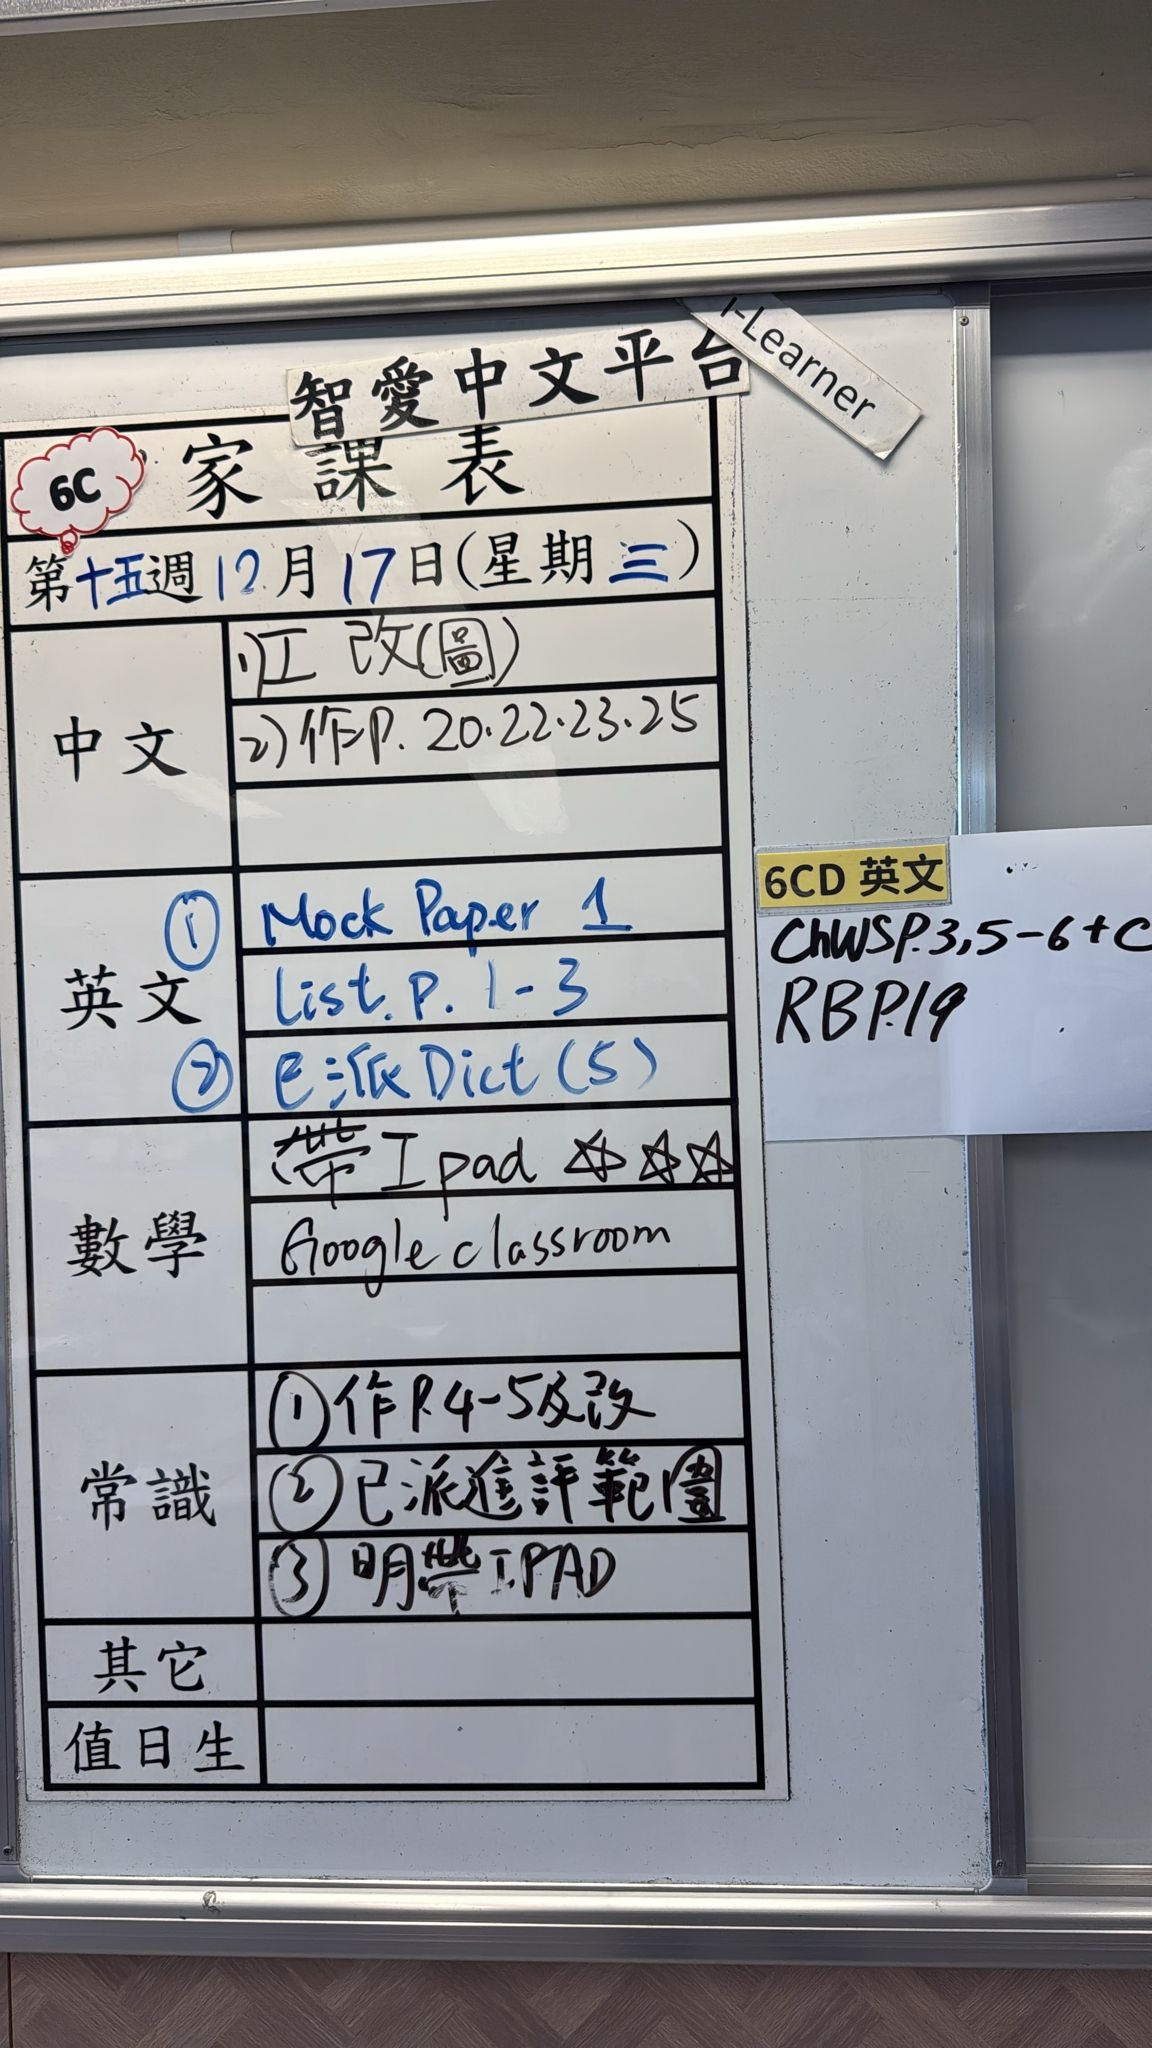 智愛中文平台
i-Learner
6C 家課表
第十五週12月17日(星期三)
中文
1)工 改(圖)
2)作P. 20.22.23.25
英文
① Mock Paper 1
List. P. 1-3
② 已派Dict (5)
6CD 英文
ChWSP.3,5-6+C
RBP.19
數學
帶Ipad ☆☆☆
Google classroom
常識
①作P.4-5及改
②已派進評範圍
③明帶IPAD
其它
值日生